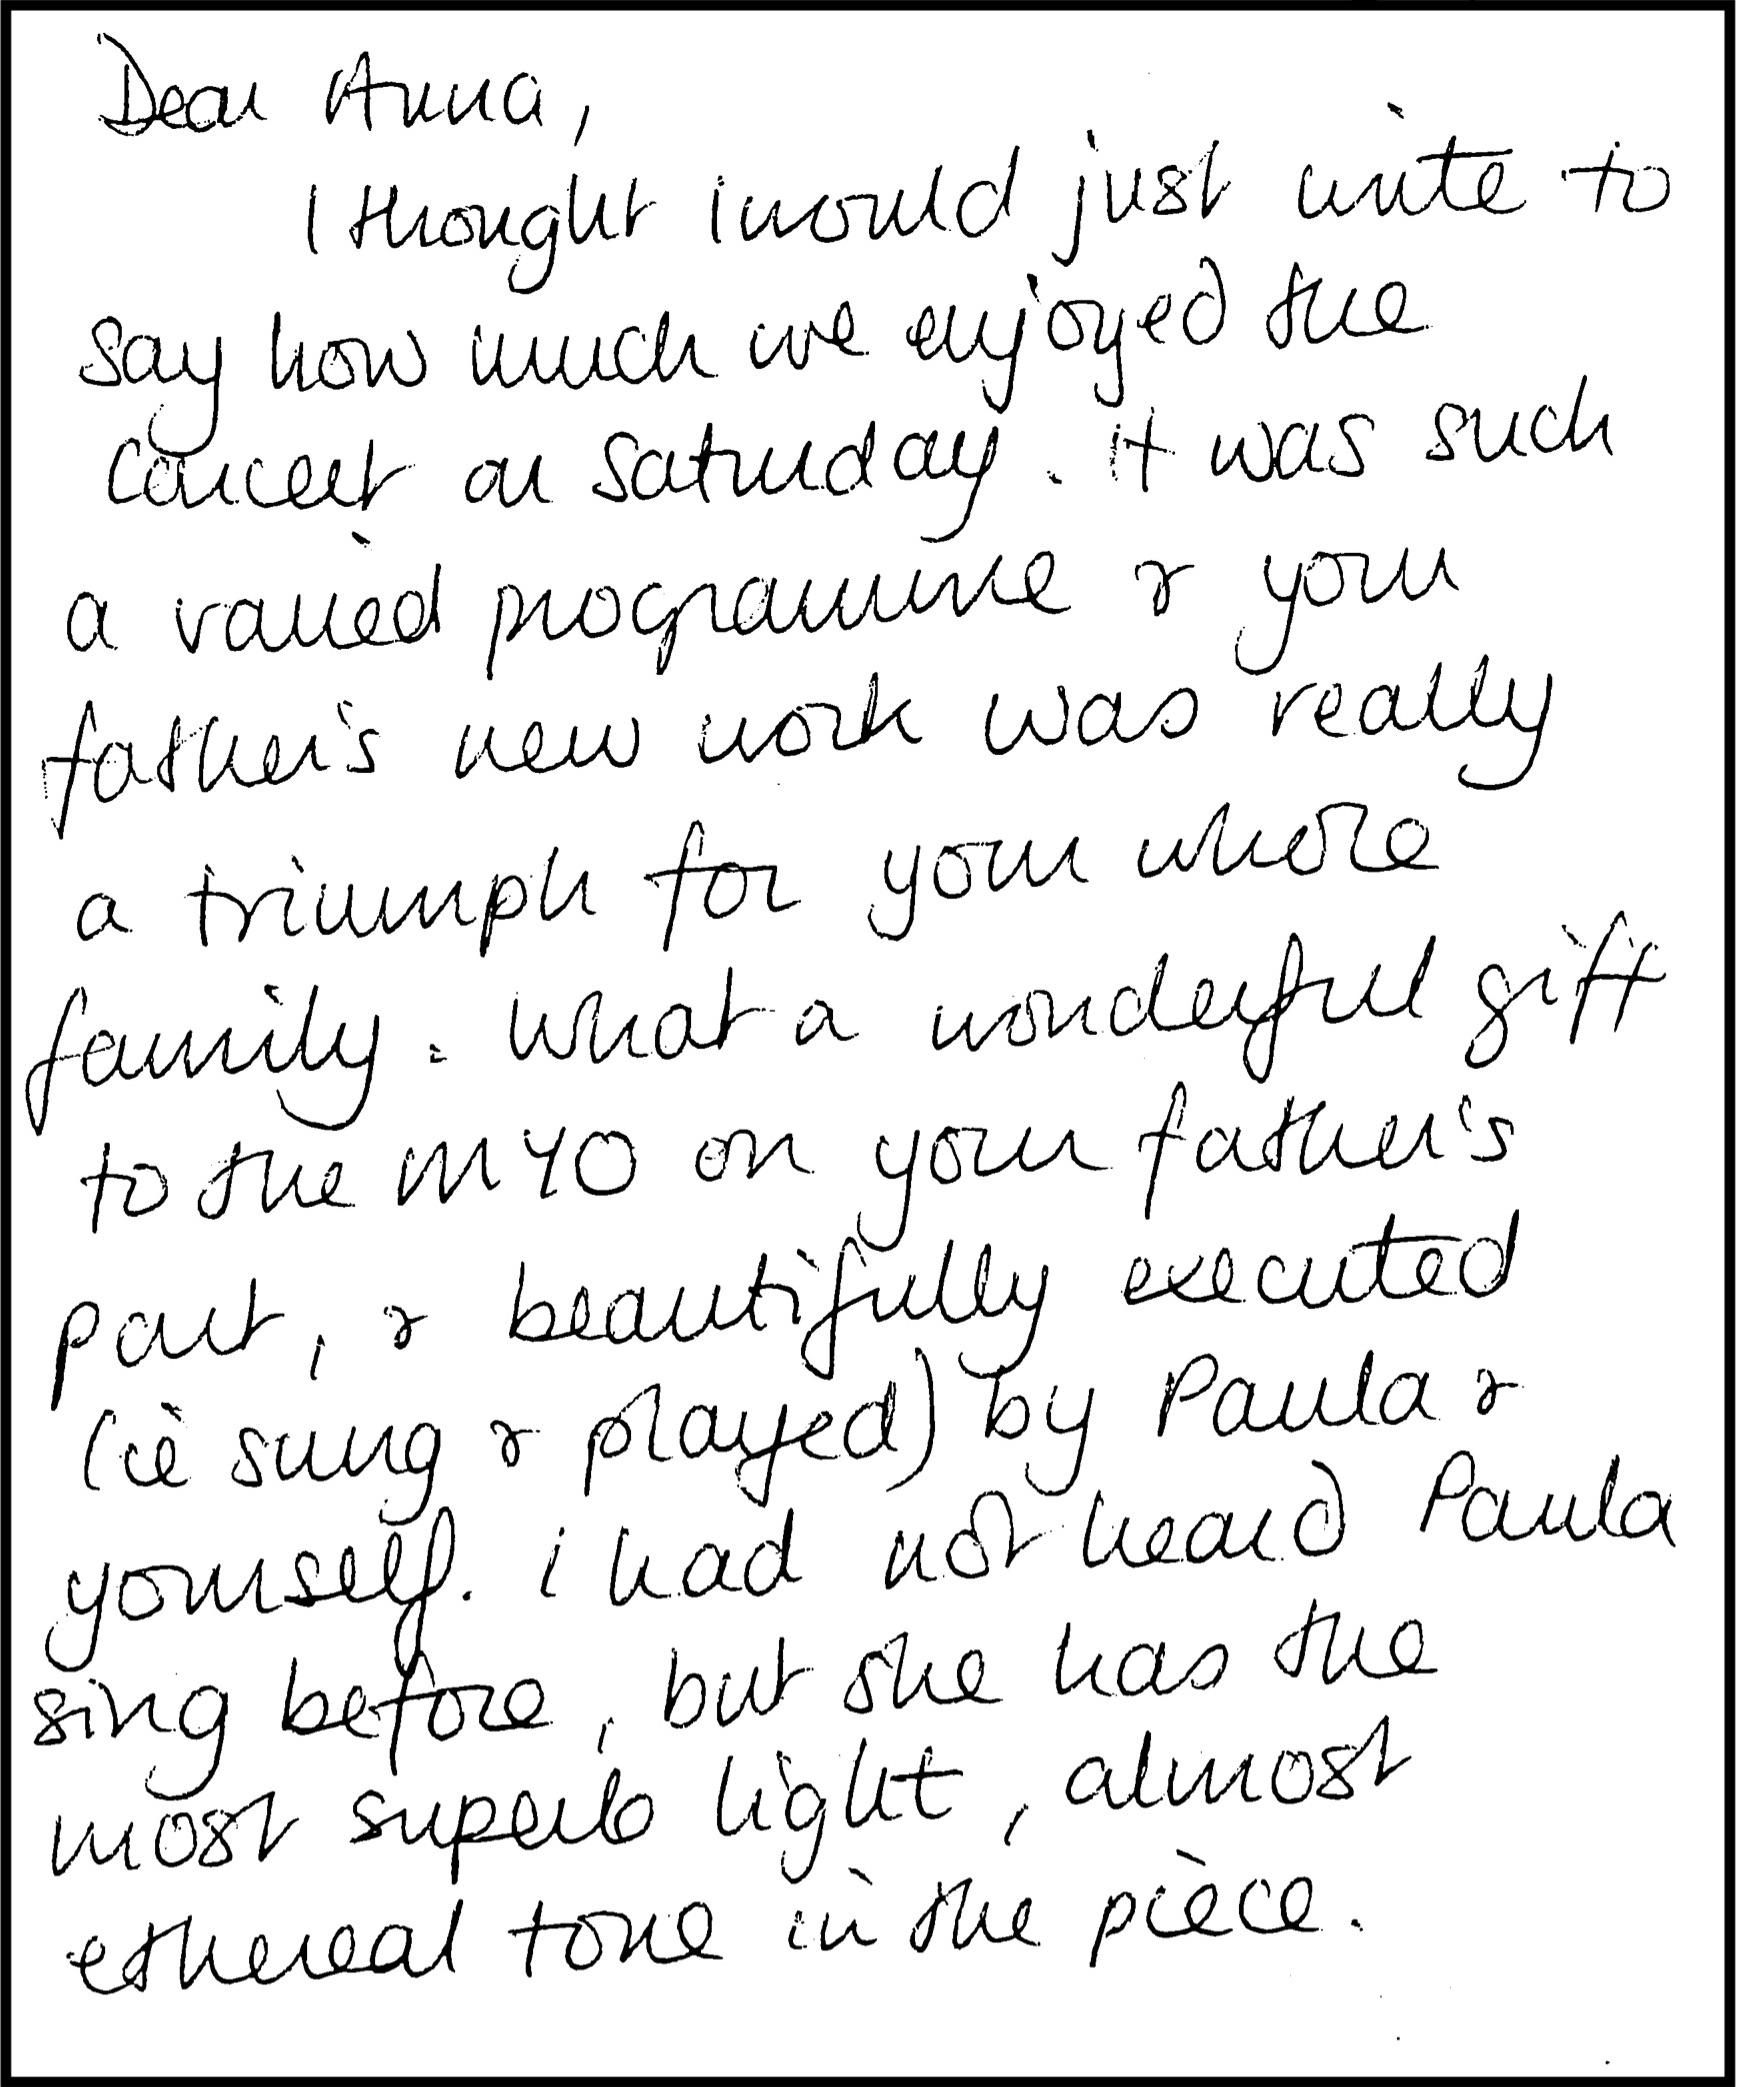 Dear Anna,
I thought I would just write to
say how much we enjoyed the
concert on Saturday. It was such
a varied programme & your
father's new work was really
a triumph for your whole
family. What a wonderful gift
to the MYO on your father's
part, & beautifully executed
(ie sung & played) by Paula &
yourself. I had not heard Paula
sing before, but she has the
most superb light, almost
ethereal tone in the piece.